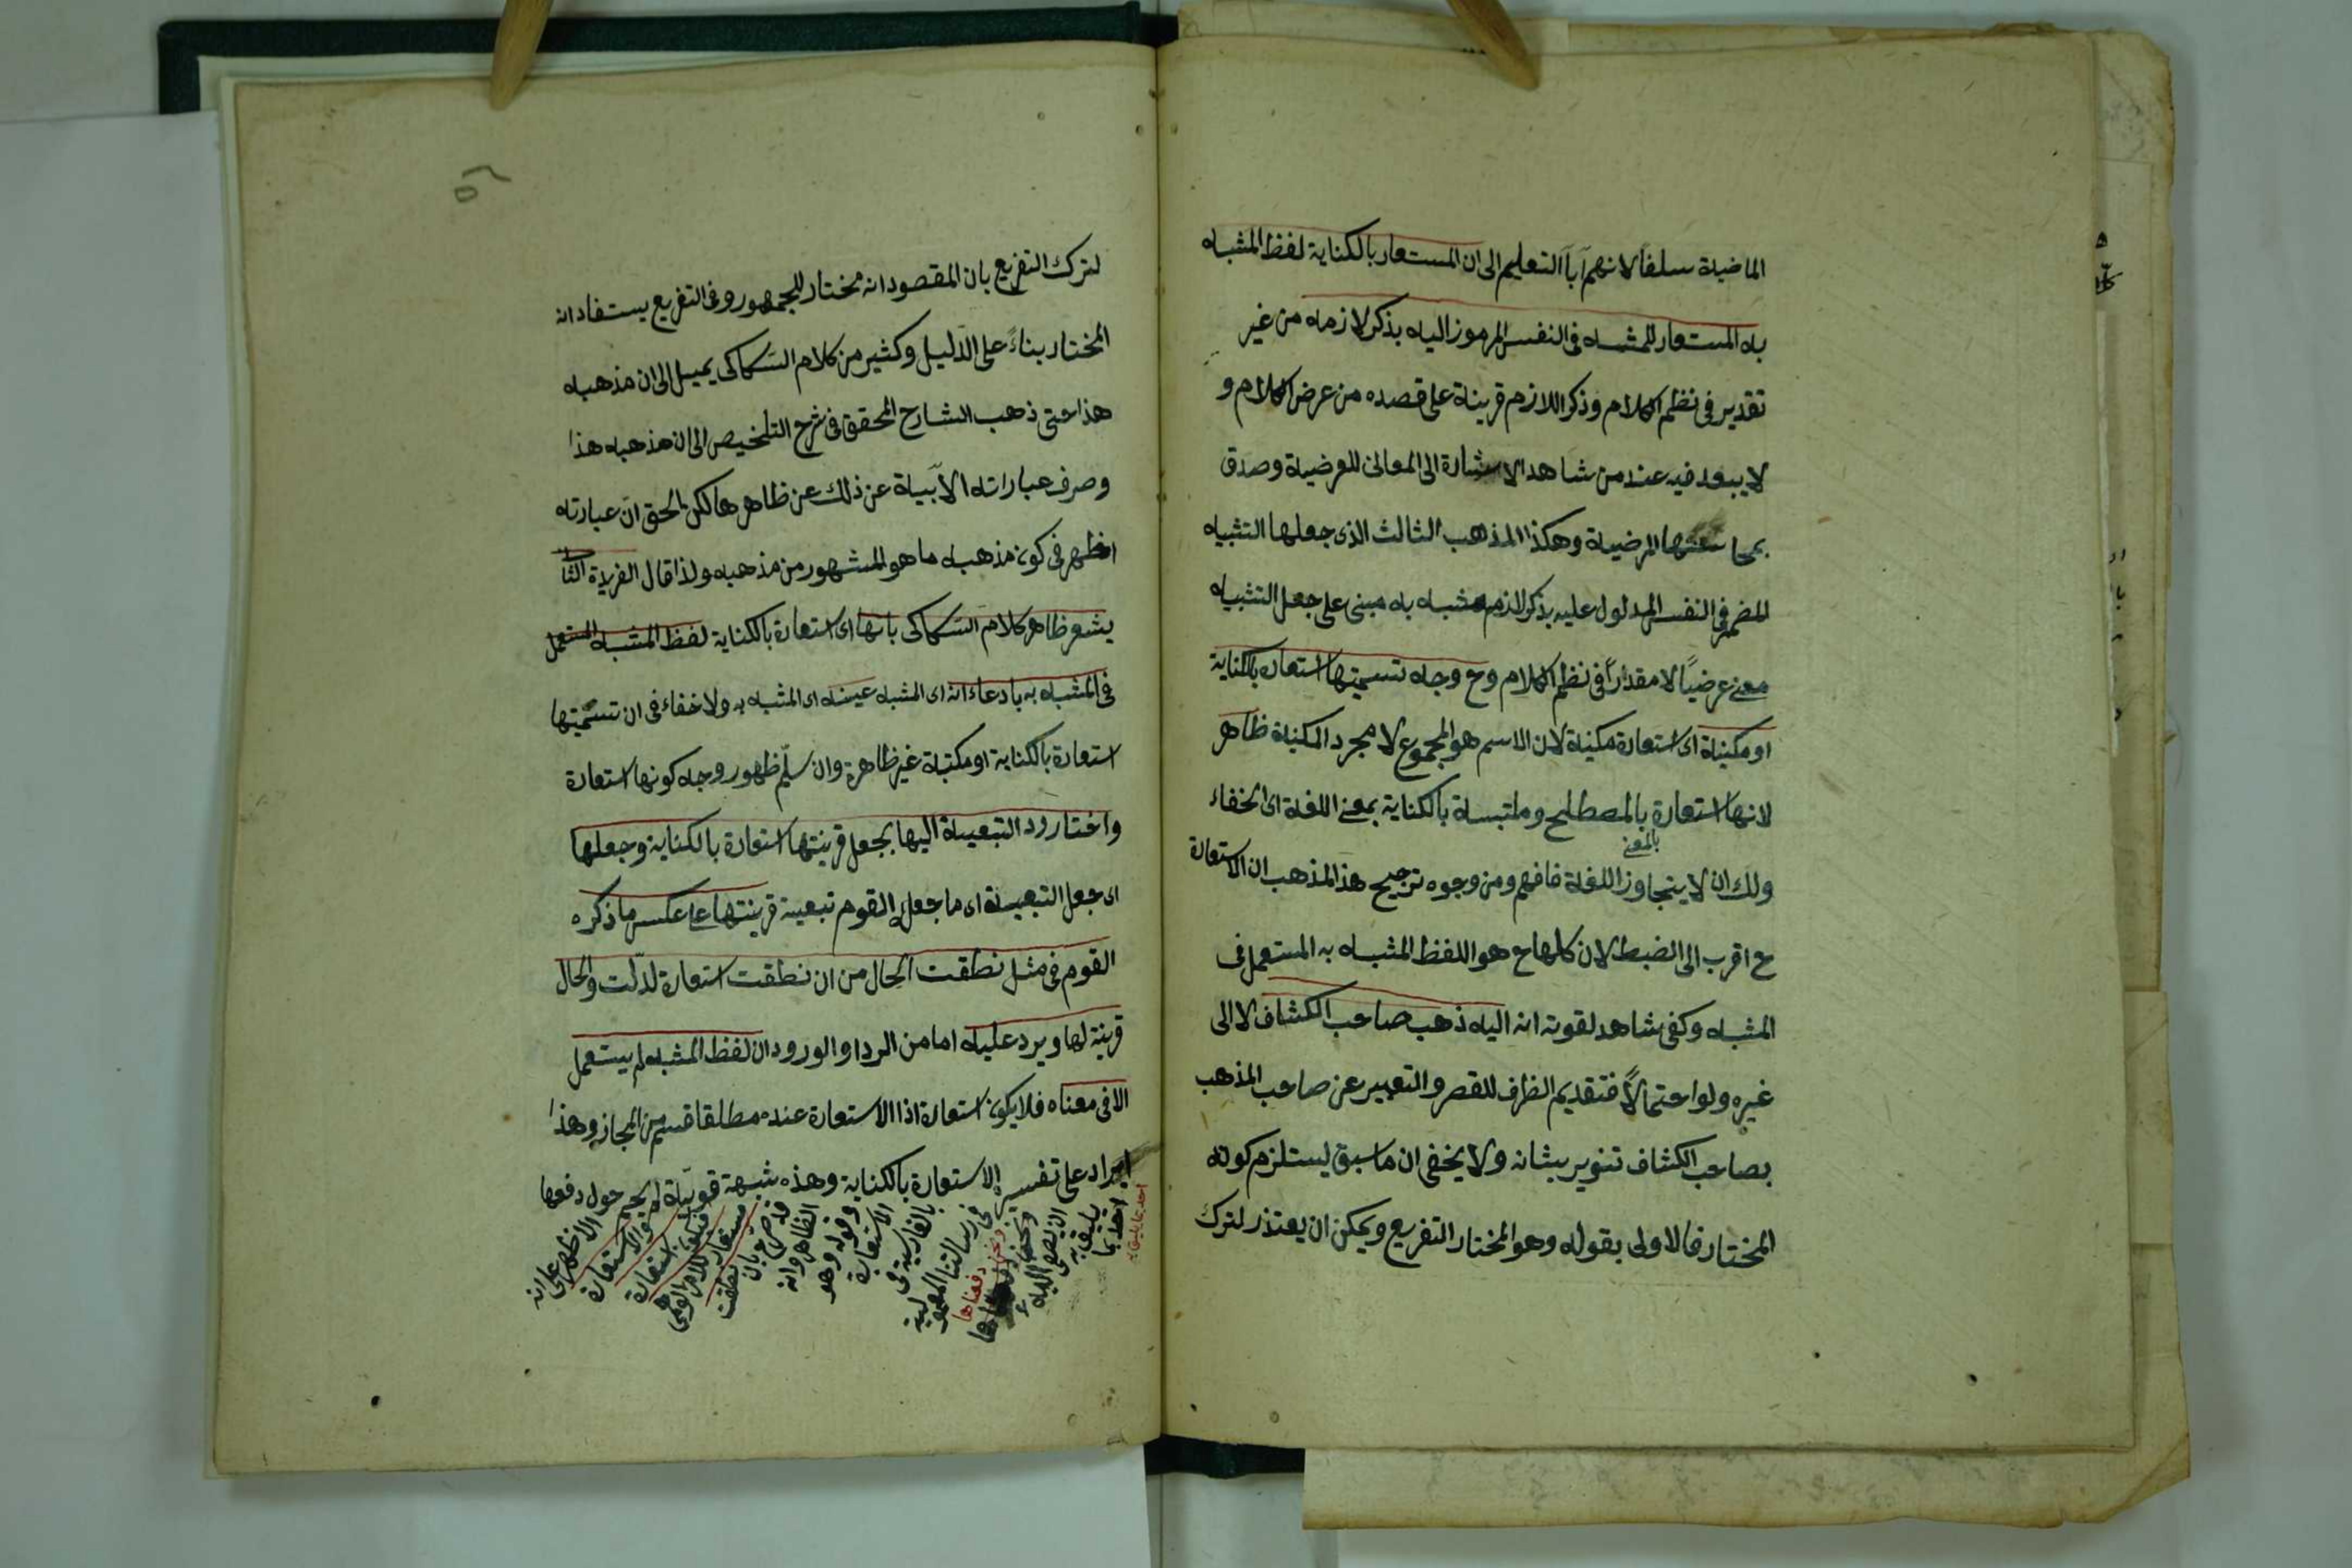 الماضية سلفا لانهم آباء التعليم الى ان المستعار بالكناية لفظ المشبه
به المستعار للمشبه فى النفس المرموز اليه بذكر لازمه من غير
تقدير فى نظم الكلام وذكر اللازم قرينة على قصده من عرض الكلام و
لا يبعد فيه عند من شاهد الاشارة الى المعانى العرضية وصدق
المرضية وهكذا المذهب الثالث الذى جعلها التشبيه
المضمر فى النفس المدلول عليه بذكر لازم مشبه به مبنى على جعل التشبيه
معنے عرضيًا لا مقدارًا فى نظم الكلام وح وجه تسميتها استعارة بالكناية
او مكنية اى استعارة مكنية لان الاسم هو المجموع لا مجرد المكنية ظاهر
لانها استعارة بالمصطلح وملتبسة بالكناية بمعنے اللغة اى الخفاء
بالمعنے
ولك ان لا يتجاوز اللغة فافهم ومن وجوه ترجيح هذا المذهب ان الاستعارة
ح اقرب الى الضبط لان كلها ح هو اللفظ المشبه به المستعمل فى
المشبه وكفى شاهد لقوته انه اليه ذهب صاحب الكشاف لا الى
غيره ولو احتمالاً فتقديم الظرف للقصر والتعبير عن صاحب المذهب
بصاحب الكشاف تنوير بشانه ولا يخفى ان ما سبق ليستلزم كونه
المختار فالاولى بقوله وهو المختار التفريع ويمكن ان يعتذر لترك
لترك التفريع بان المقصود انه مختار للجمهور وفى التفريع يستفاد انه
المختار بناءً على الدليل وكثير من كلام السكاكى يميل الى ان مذهبه
هذا حتى ذهب الشارح المحقق فى شرح التلخيص الى ان مذهبه هذا
وصرف عباراته الابّية عن ذلك عن ظاهرها لكن الحق ان عبارته
اظهر فى كون مذهبه ما هو المشهور من مذهبه ولذا قال الفريدة الثا
يشعر ظاهر كلام السكاكى بانها اى استعارة بالكناية لفظ المشبه المستعمل
فى المشبه به بادعاء انه اى المشبه عينه اى المشبه به ولا خفاء فى ان تسميتها
استعارة بالكناية او مكنية غير ظاهرة وان سلّم ظهور وجه كونها استعارة
واختار رد التبعية اليها بجعل قرينتها استعارة بالكناية وجعلها
اى جعل التبعية اى ما جعله القوم تبعية قرينتها على عكس ما ذكره
القوم فى مثل نطقت الحال من ان نطقت استعارة لدلّت والحال
قرينة لها ويرد عليه اما من الرد او الورود ان لفظ المشبه لم يستعمل
الا فى معناه فلا يكون استعارة اذا الاستعارة عنده مطلقا قسم من المجاز وهذا
ايراد على تفسيره الاستعارة بالكناية وهذه شبهة قوية لم يحم حول دفعها
احد بما
يليق به
فى رسالتنا المعمولة
بالفارسية فى
الاستعارة
وقوله وهو
الظاهر وانه
قد صرح بان نطقت
مستعار للامر الوهمى
فيكون استعارة
والاستعارة
الاظهر على انه